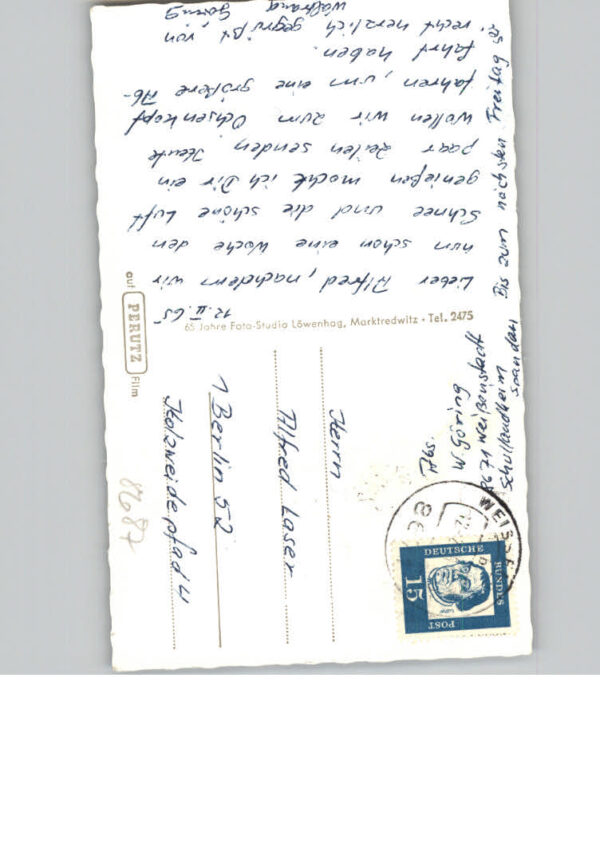 12.II.65
Lieber Alfred, nachdem wir
nun schon eine Woche den
Schnee und die schöne Luft
genießen möcht ich Dir ein
paar Zeilen senden. Heute
wollen wir zum Ochsenkopf
fahren, um eine größere Ab-
fahrt haben.
recht herzlich gegrüßt, von
Göring
Bis zum nächsten Freitag sei
65 Jahre Foto-Studio Löwenhag, Marktredwitz · Tel. 2475
auf PERUTZ Film
Abs.
W. Göring
8671 Weißenstadt
Schullandheim
Spandau
Herrn
Alfred Laser
1 Berlin 52
Holzweidepfad 4
DEUTSCHE
BUNDES
POST
15
Luther
87687